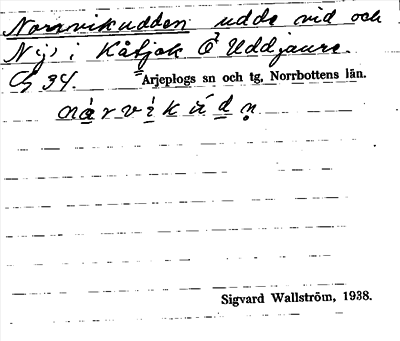 Norrvikudden udde vid och
N j, i Kåtjok O² Uddjaure.
G 34. Arjeplogs sn och tg, Norrbottens län.
nårvikúdn
Sigvard Wallström, 1938.